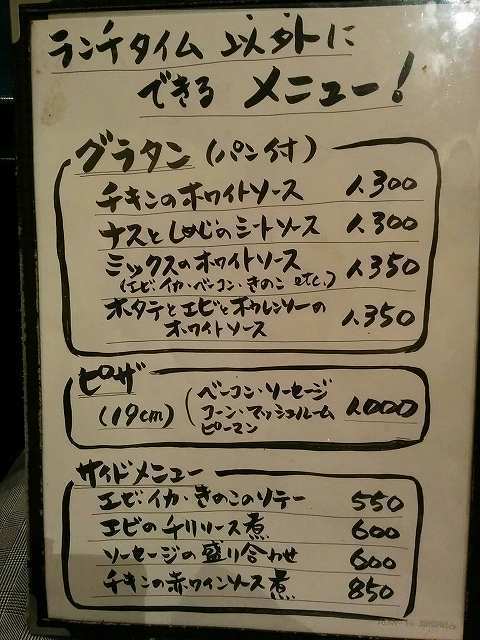 ランチタイム 以外に
できる メニュー!
グラタン (パン付)
チキンのホワイトソース 1.300
ナスとしめじのミートソース 1.300
ミックスのホワイトソース 1.350
(エビ・イカ・ベーコン・きのこ etc.)
ホタテとエビとホウレンソーの
ホワイトソース 1.350
ピザ
(19cm)
ベーコン・ソーセージ
コーン・マッシュルーム
ピーマン
1.000
サイドメニュー
エビ イカ・きのこのソテー 550
エビのチリソース煮 600
ソーセージの盛り合わせ 600
チキンの赤ワインソース煮 850